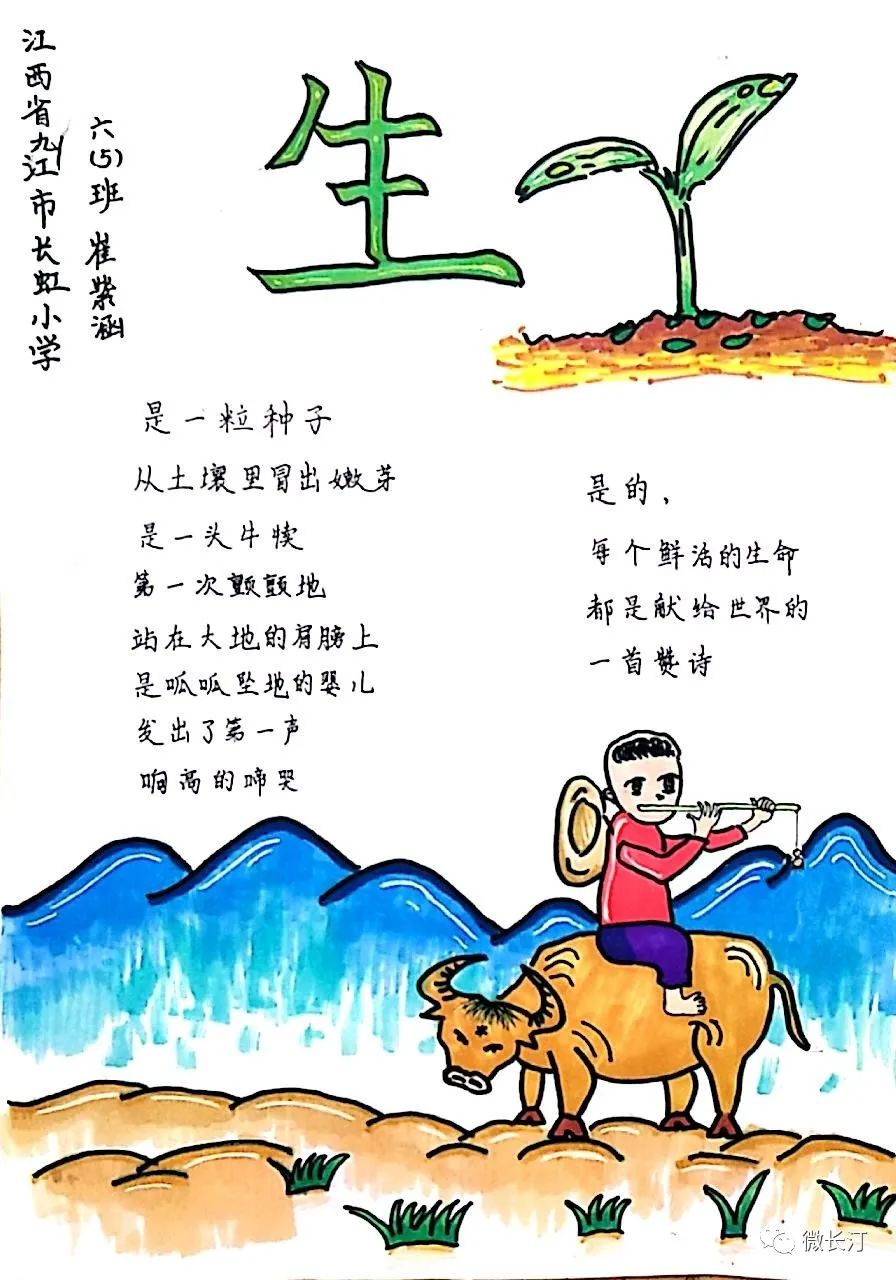 江西省九江市长虹小学
六(5)班 崔紫涵
生
是一粒种子
从土壤里冒出嫩芽
是一头牛犊
第一次颤颤地
站在大地的肩膀上
是呱呱坠地的婴儿
发出了第一声
响高的啼哭
是的,
每个鲜活的生命
都是献给世界的
一首赞诗
微长汀